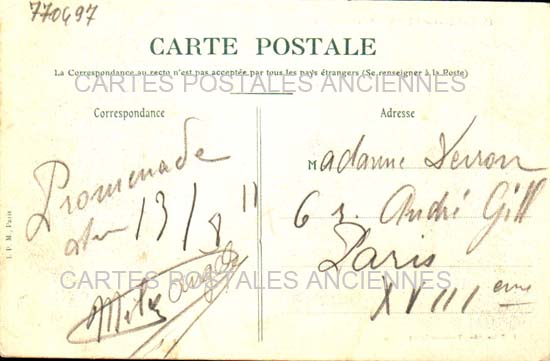 770497
CARTE POSTALE
La Correspondance au recto n'est pas acceptée par tous les pays étrangers (Se renseigner à la Poste)
CARTES POSTALES ANCIENNES
Correspondance
Promenade
13/8 11
I. P. M. Paris
Adresse
Madame
6 r. André Gill
Paris
XVIII eme
CARTES POSTALES ANCIENNES